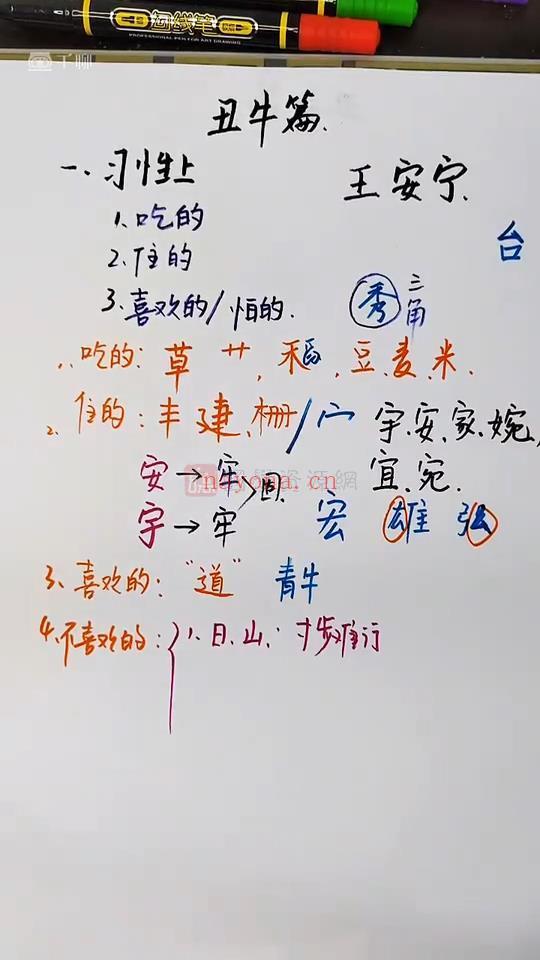 勾线笔
PROFESSIONAL PEN FOR ART DRAWING
千聊
丑牛篇.
一、习性上
王安宁.
1.吃的
2.住的
3.喜欢的/怕的.
台
秀 三角
1、吃的: 草 艹, 禾, 豆、麦、米.
2、住的: 丰 建、栅/宀 宇.安.家.婉,
宜.宛.
安→牢>同.
宇→牢
宏 雄 弘
nayona.cn
3、喜欢的: "道" 青牛
4.不喜欢的: 1、日、山: 寸步难行